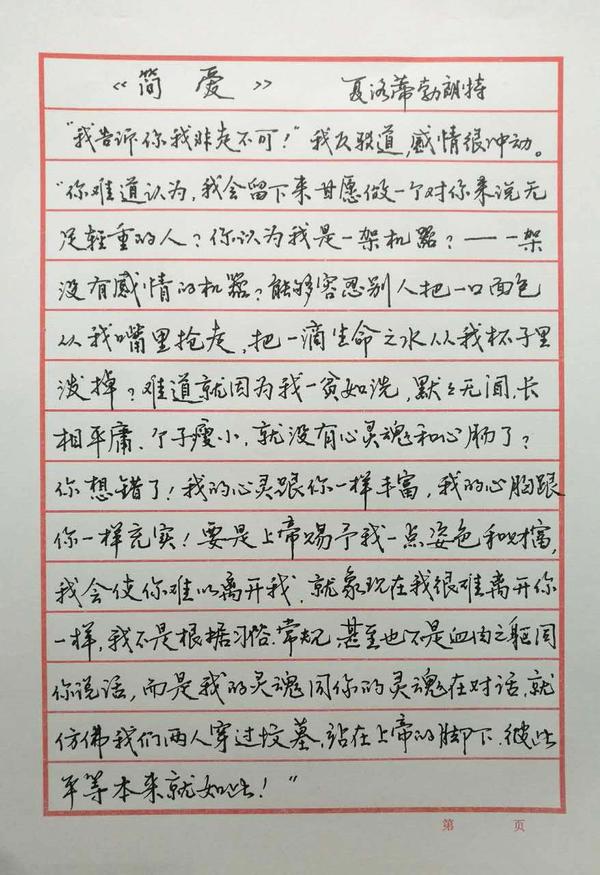 《简爱》 夏洛蒂勃朗特
“我告诉你我非走不可！”我反驳道，感情很冲动。
“你难道认为，我会留下来甘愿做一个对你来说无
足轻重的人？你认为我是一架机器？——一架
没有感情的机器？能够容忍别人把一口面包
从我嘴里抢走，把一滴生命之水从我杯子里
泼掉？难道就因为我一贫如洗，默々无闻，长
相平庸、个子瘦小，就没有心灵魂和心肠了？
你想错了！我的心灵跟你一样丰富，我的心胸跟
你一样充实！要是上帝赐予我一点姿色和财富，
我会使你难以离开我，就象现在我很难离开你
一样，我不是根据习俗、常规，甚至也不是血肉之躯同
你说话，而是我的灵魂同你的灵魂在对话，就
仿佛我们两人穿过坟墓，站在上帝的脚下，彼此
平等本来就如此！”
第 页